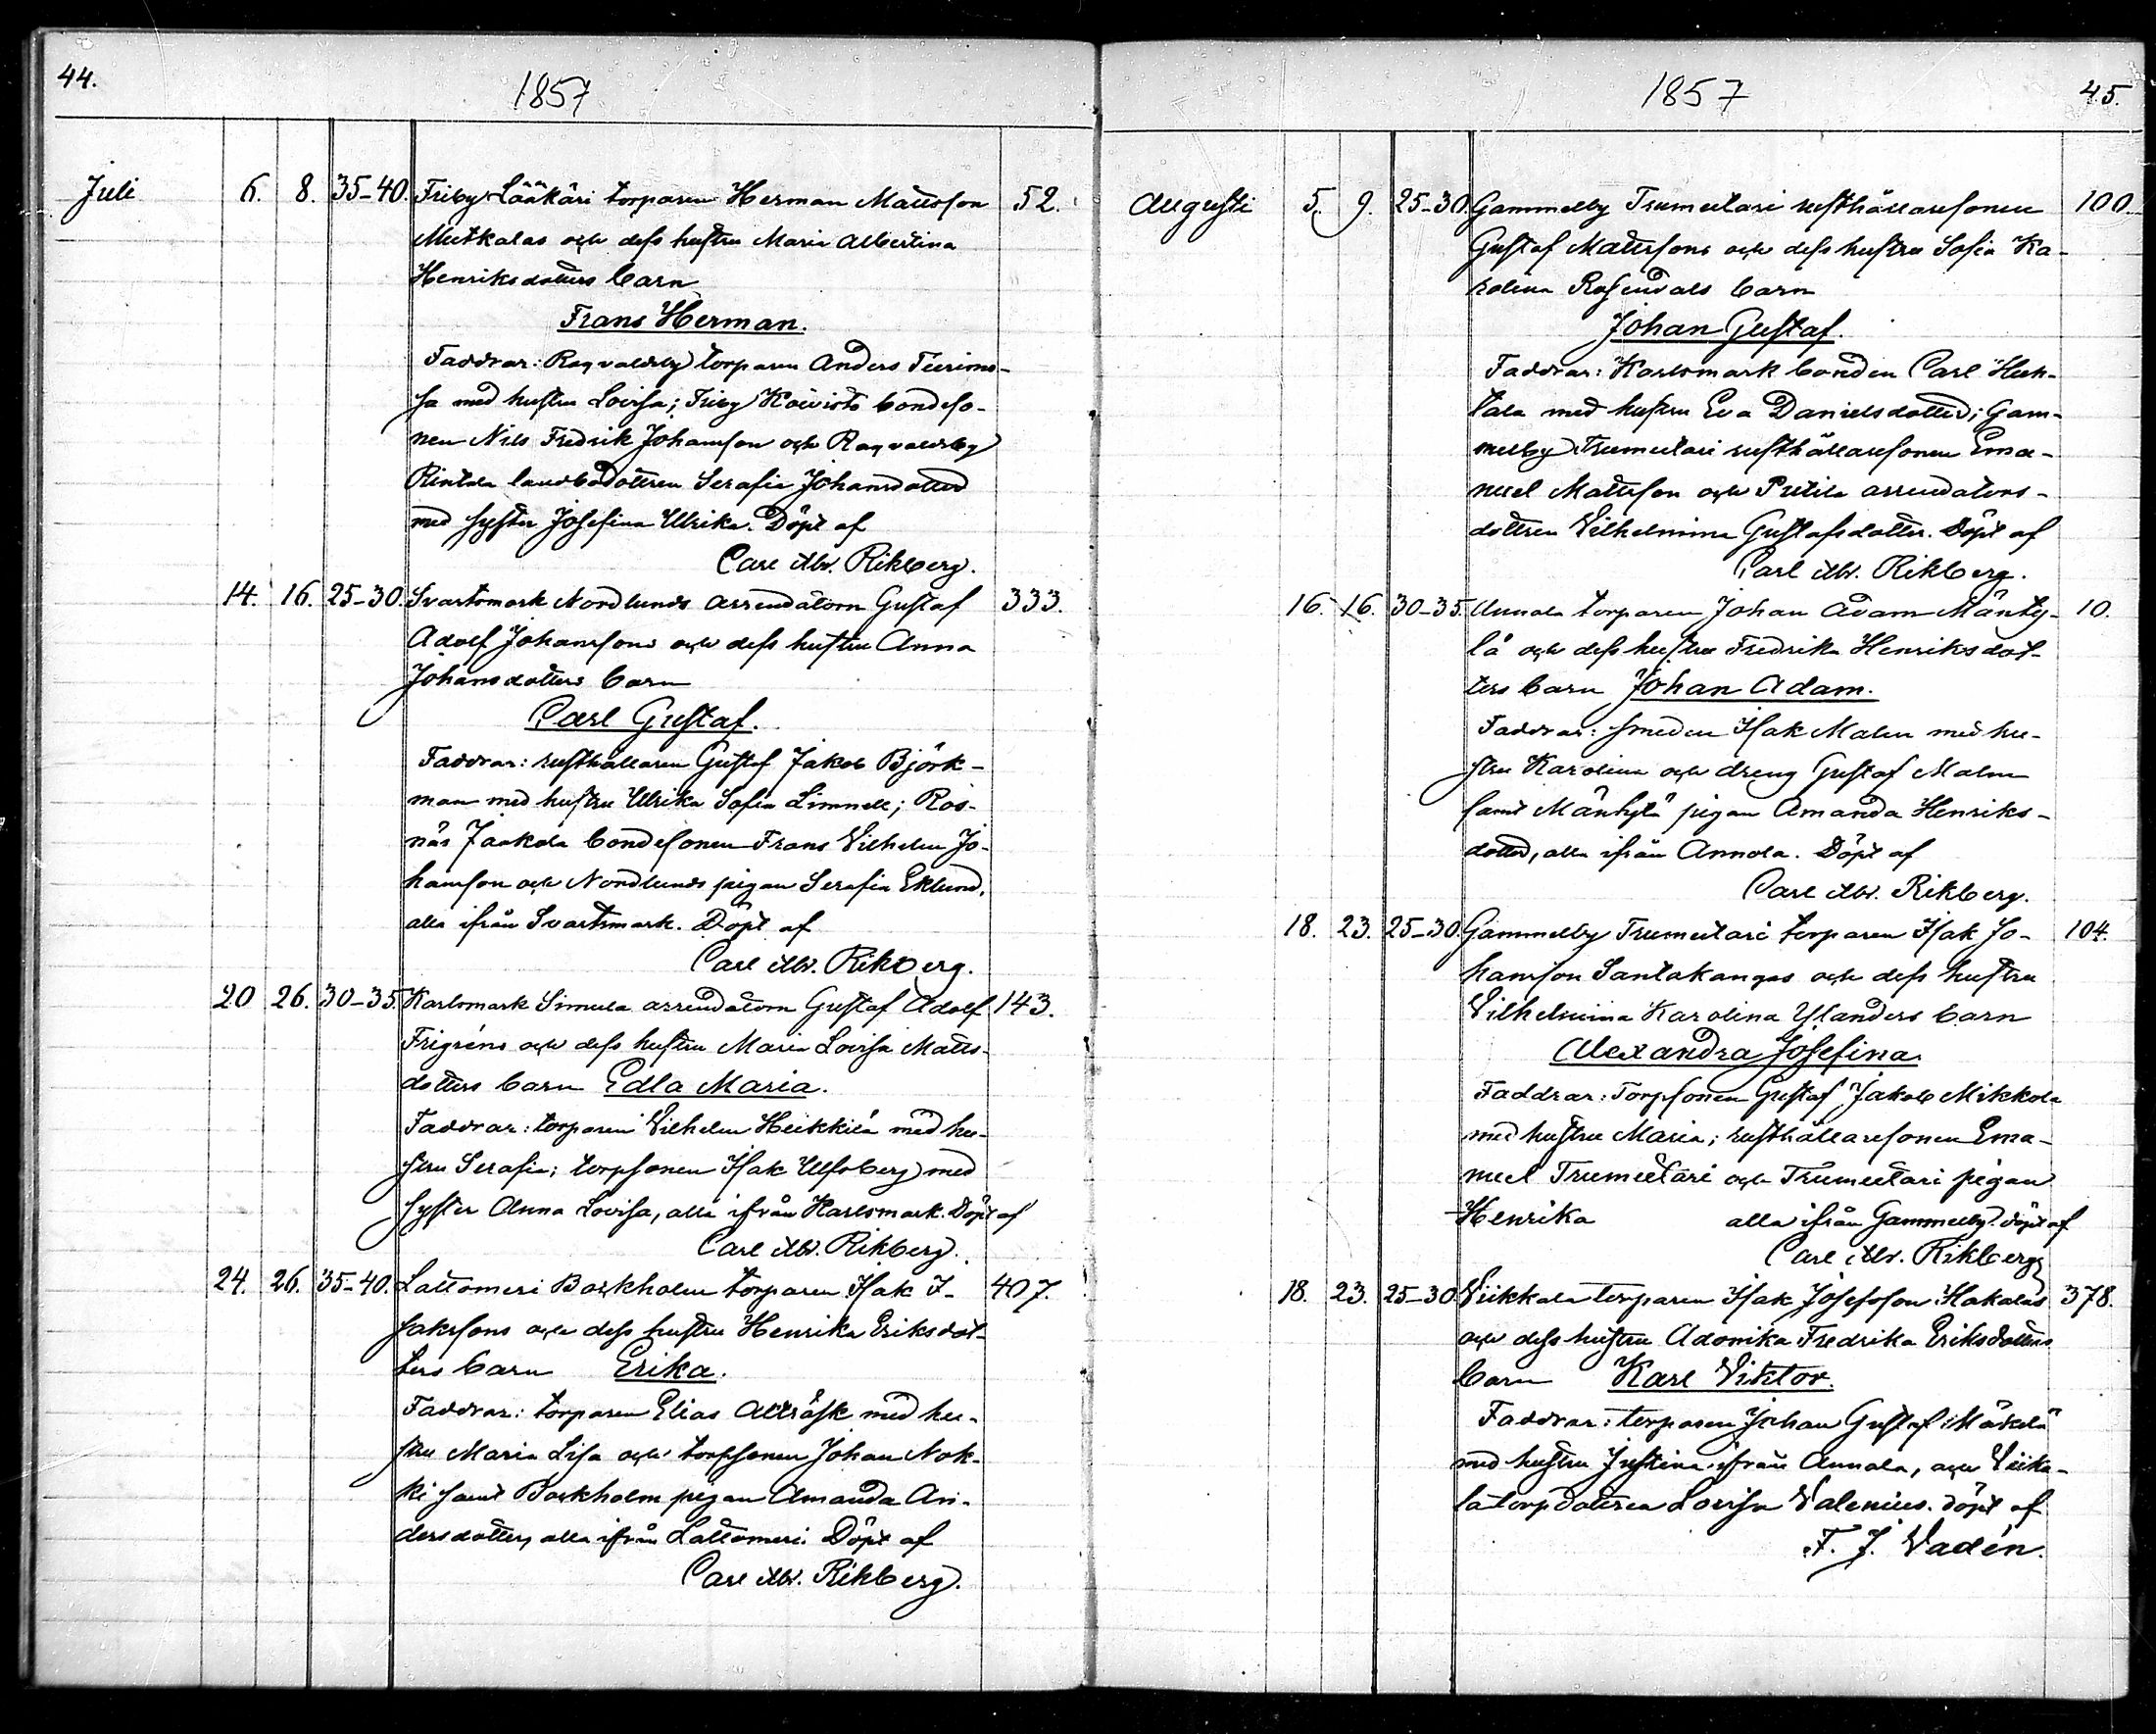 44.
1857
Juli 6. 8. 35-40. Friby Lääkäri torparen Herman Mattsson 52.
Mutkalas och dess hustru Maria Albertina
Henriksdotters barn
Frans Herman.
Faddrar: Ragvaldsby torparen Anders
sa med hustru Lovisa; Friby Koivisto bondeso-
nen Nils Fredrik Johansson och Ragvaldsby
Rintala landbodottren Serafia Johansdotter
med syster Josefina Ulrika. Döpt af
Carl Alb. Rikberg.
14. 16. 25-30. Svartsmark Nordlunds arrendatorn Gustaf 333.
Adolf Johanssons och dess hustru Anna
Johansdotters barn
Carl Gustaf.
Faddrar: rusthållaren Gustaf Jakob Björk-
man med hustru Ulrika Sofia Limnell; Ros-
näs Jaakola bondesonen Frans Vilhelm Jo-
hansson och Nordlunds pigan Serafia Eklund,
alla ifrån Svartsmark. Döpt af
Carl Alb. Rikberg.
20 26. 30-35. Karlsmark Simula arrendatorn Gustaf Adolf 143.
Frigréns och dess hustru Maria Lovisa Matts-
dotters barn Edla Maria.
Faddrar: torparen Vilhelm Heikkilä med hu-
stru Serafia; torpsonen Isak Ulfsberg med
syster Anna Lovisa, alla ifrån Karlsmark. Döpt af
Carl Alb. Rikberg.
24. 26. 35-40. Lattomeri Barkholm torparen Isak I- 407.
saksons och dess hustru Henrika Eriksdot-
ters barn Erika.
Faddrar: torparen Elias Allträsk med hu-
stru Maria Lisa och torpsonen Johan Nok-
ki samt Barkholm pigan Amanda An-
dersdotter, alla ifrån Lattomeri. Döpt af
Carl Alb. Rikberg.
1857
45.
Augusti 5. 9. 25-30. Gammelby Trumetari rusthållaresonen 100.
Gustaf Mattssons och dess hustru Sofia Ka-
rolina Rosendals barn
Johan Gustaf.
Faddrar: Karlsmark bonden Carl Huh-
tala med hustru Eva Danielsdotter; Gam-
melby Trumetari rusthållaresonen Ema-
nuel Mattsson och Prittila arrendators-
dottren Vilhelmina Gustafsdotter. Döpt af
Carl Alb. Rikberg.
16. 16. 30-35. Annala torparen Johan Adam Mänty- 10.
lä och dess hustru Fredrika Henriksdot-
ters barn Johan Adam.
Faddrar: smeden Isak Malm med hu-
stru Karolina och dreng Gustaf Malm
samt Mäntylä pigan Amanda Henriks-
dotter, alla ifrån Annola. Döpt af
Carl Alb. Rikberg.
18. 23. 25-30. Gammelby Trumetari torparen Isak Jo- 104.
hansson Santakangas och dess hustru
Vilhelmina Karolina Ylanders barn
Alexandra Josefina.
Faddrar: Torpsonen Gustaf Jakob Mikkola
med hustru Maria; rusthållaresonen Ema-
nuel Trumetari och Trumetari pigan
Henrika alla ifrån Gammelby. Döpt af
Carl Alb. Rikberg
18. 23. 25-30. Viikkala torparen Isak Josefsson Hakalas 378.
och dess hustru Adonika Fredrika Eriksdotters
barn Karl Viktor.
Faddrar: torparen Johan Gustaf Mäkelä
med hustru Justina ifrån Annala, och Viika-
la torpdottren Lovisa Valenius. Döpt af
F. J. Vadén.